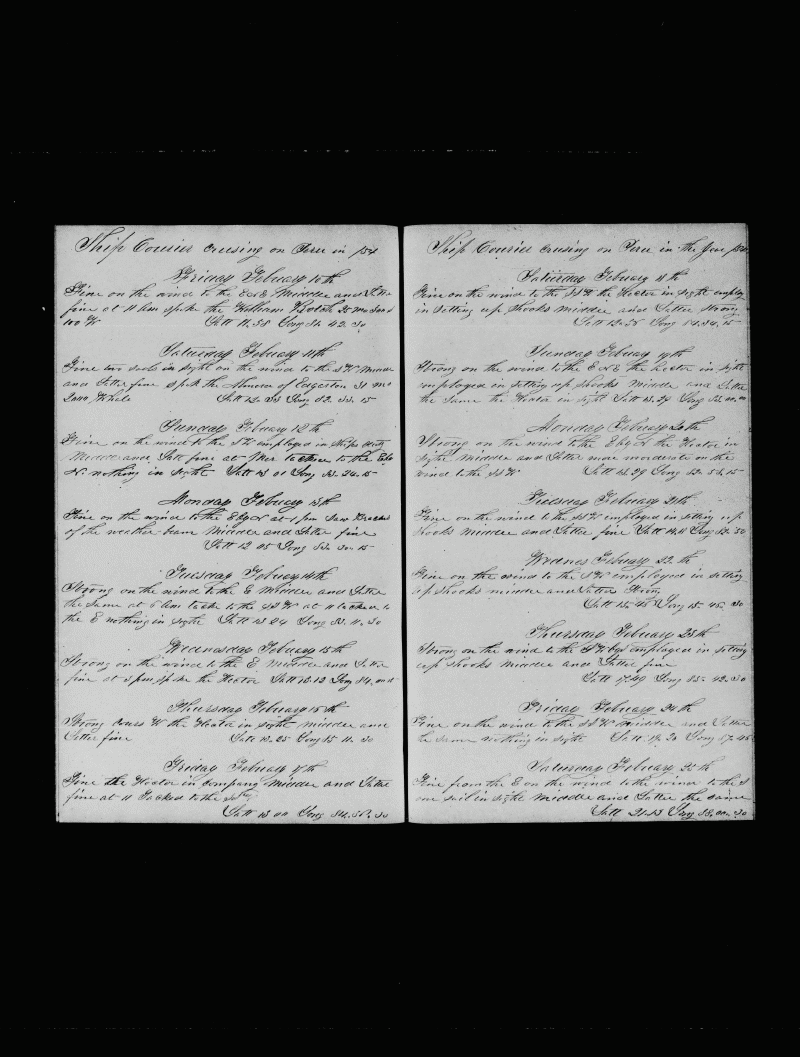 Ship Courier cruising on Peru in 1854
Friday Febuary 10th
Fine on the wind to the middle and Latter
fine at 11 Am spoke the William 25 ms
100 W Latt 11.58 Long 82.42.30
Saturday Febuary 11th
Fine two sails in sight on the wind to the SW Middle
and Latter fine spok the of Edgarton 31 mo
2000 Whale Latt 12.33 Long 82.33.15
Sunday Febuary 12th
Fine on the wind to the SW employed in Ships duty
Middle and Latt fine at to the
N nothing in sight Latt 13 01 Long 83.24.15
Monday Febuary 13th
Fine on the wind to the EbyS at 1 pm Saw
of the weather beam Middle and Latter fine
Latt 12 05 Long 30.15
Tuesday Febuary 14th
Strong on the wind to the E Middle and Latter
the Same at 6 Am tackd to the SSW at 11 tacked to
the E nothing in sight Latt 13 24 Long 83.11.30
Wednesday Febuary 15th
Strong on the wind to the E. Middle and Latter
fine at 3 pm spoke the Hector Latt 13.12 Long 84.00.15
Thursday Febuary 15th
Strong W the Hector in sight middle and
Latter fine Latt 13.25 Long 15 11.30
Friday Febuary 17th
Fine the Hector in company Middle and Latter
fine at 11 Tacked to the
Latt 13 00 Long 84.51.30
Ship Courier cruising on Peru in the Year 1854
Saturday Febuary 18th
Fine on the wind to the SSW the Hector in sight employ
in Setting up Shooks middle and Latter Strong
Latt 13.25 Long 84.34.15
Sunday Febuary 19th
Strong on the wind to the the Hector in sight
employed in setting up shooks middle and Latter
the same the Hector in sight Latt 13.29 Long
Monday Febuary 20th
Strong on the wind to the EbyS the Hector in
sight middle and Latter more moderate on the
wind to the SSW Latt 13.29 Long 82.53.15
Tuesday Febuary 21th
Fine on the wind to the SSW employed in setting up
shooks middle and Latter fine Latt 14.11 Long
Wednes Febuary 22th
Fine on the wind to the SW employed in setting
up shooks middle and Latter Strong
Latt 15.48 Long 15.45.30
Thursday Febuary 23th
Strong on the wind to the employed in setting
up shooks middle and Latter fine
Latt 17.49 Long 85.42.30
Friday Febuary 24th
Fine on the wind to the SSW middle and Latter
the same nothing in sight Latt 19.20 Long 87.45
Saturday Febuary 25th
Fine from the E on the wind to the wind to the S
one sail in sight middle and Latter the same
Latt 21.13 Long 88.00.30